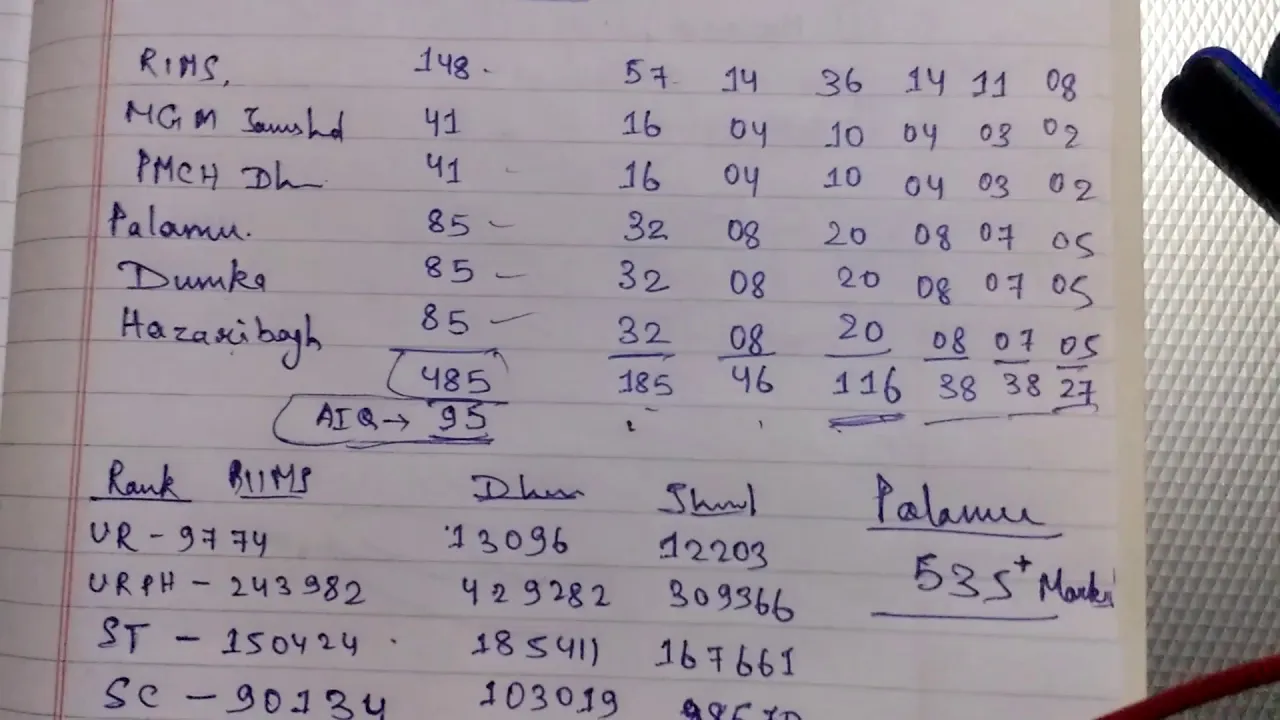 RIMS, 148 - 57 14 36 14 11 08
MGM Jamshd 41 16 04 10 04 03 02
PMCH Dh 41 - 16 04 10 04 03 02
Palamu. 85 - 32 08 20 08 07 05
Dumka 85 - 32 08 20 08 07 05
Hazaribagh 85 - 32 08 20 08 07 05
485 185 46 116 38 38 27
AIQ → 95
Rank RIIMS Dhan Jhml Palamu
UR - 9774 13096 12203 535+ Marks
URPH - 243982 429282 309366
ST - 150424 185411 167661
SC - 90134 103019